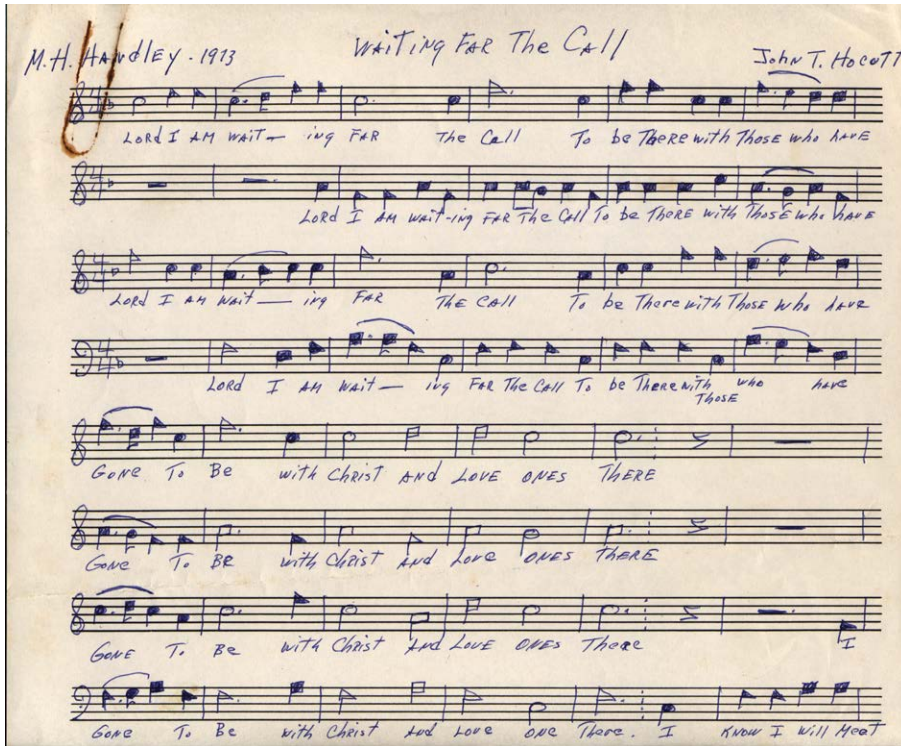 WAITING FAR The CALL
M.H. HANDLEY - 1973 JohN T. HocutT
LORD I AM WAIT— ing FAR The Call To be There with Those who hAVE
LORD I AM WAIT-ing FAR The CAll To be There with Those who hAVE
LORD I AM WAIT— ing FAR The CALL To be There with Those who hAVE
LORD I AM WAIT— ing FAR The CAll To be There with Those who hAVE
GONE To Be with Christ AND LOVE ONES THERE
GONE To BE with Christ And Love ONES THERE
GONE To Be with Christ And LOVE ONES There I
GONE To Be with Christ And Love ONE There. I KNOW I will MeaT